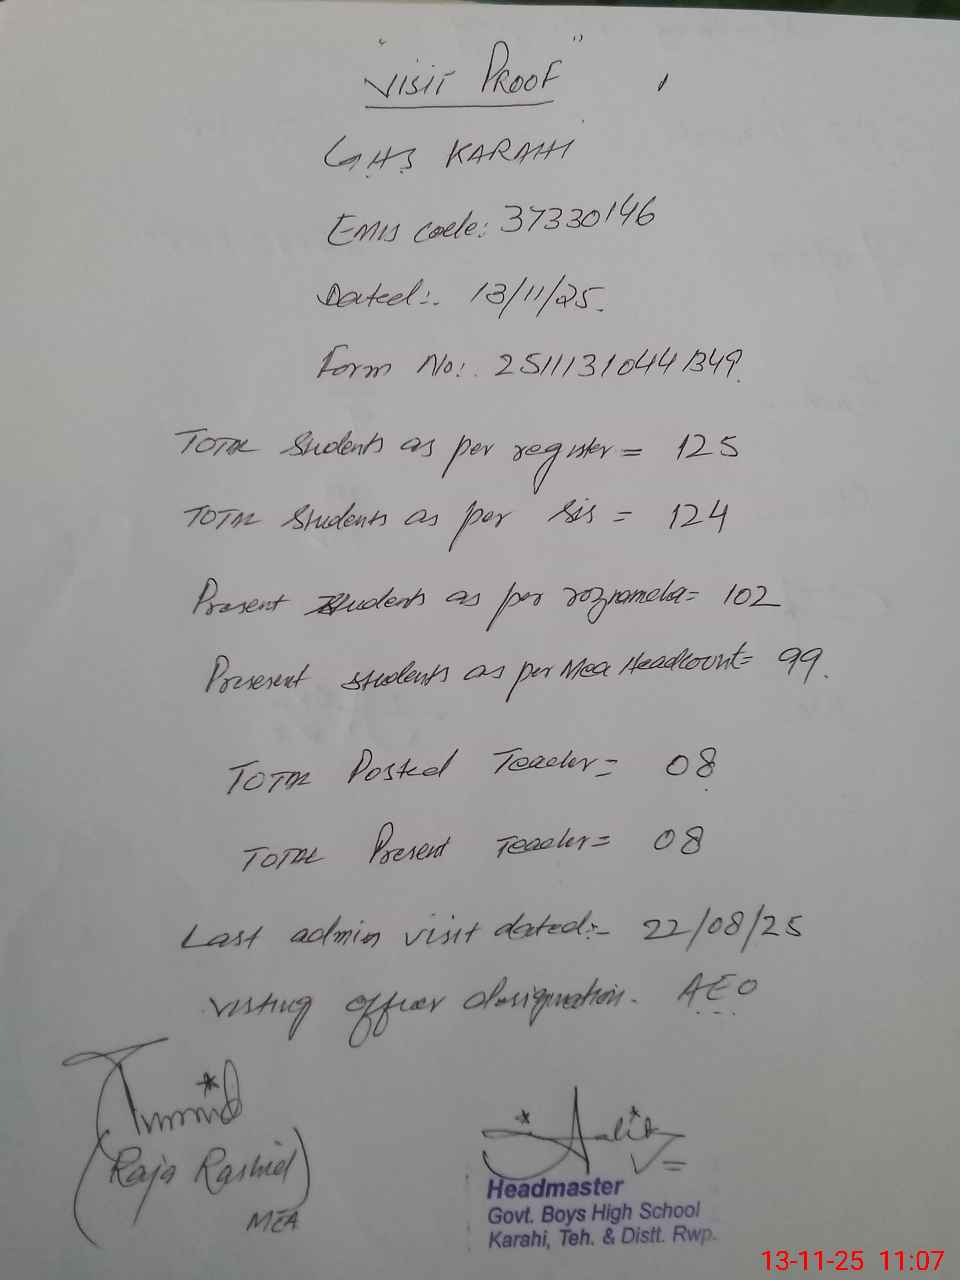 "VISIT PROOF"
G.H.S KARAHI
EMIS code: 37330146
Dated:. 13/11/25.
Form No:. 25111310441349.
TOTAL Students as per register = 125
TOTAL Students as per sis = 124
Present Students as per roznamcha= 102
Presesent students as per Mea Headcount= 99.
TOTAL Posted Teacher= 08
TOTAL Present Teacher= 08
Last admin visit dated:- 22/08/25
Visting officer designation. A.E.O
(Raja Rashid)
MEA
Headmaster
Govt. Boys High School
Karahi, Teh. & Distt. Rwp.
13-11-25 11:07